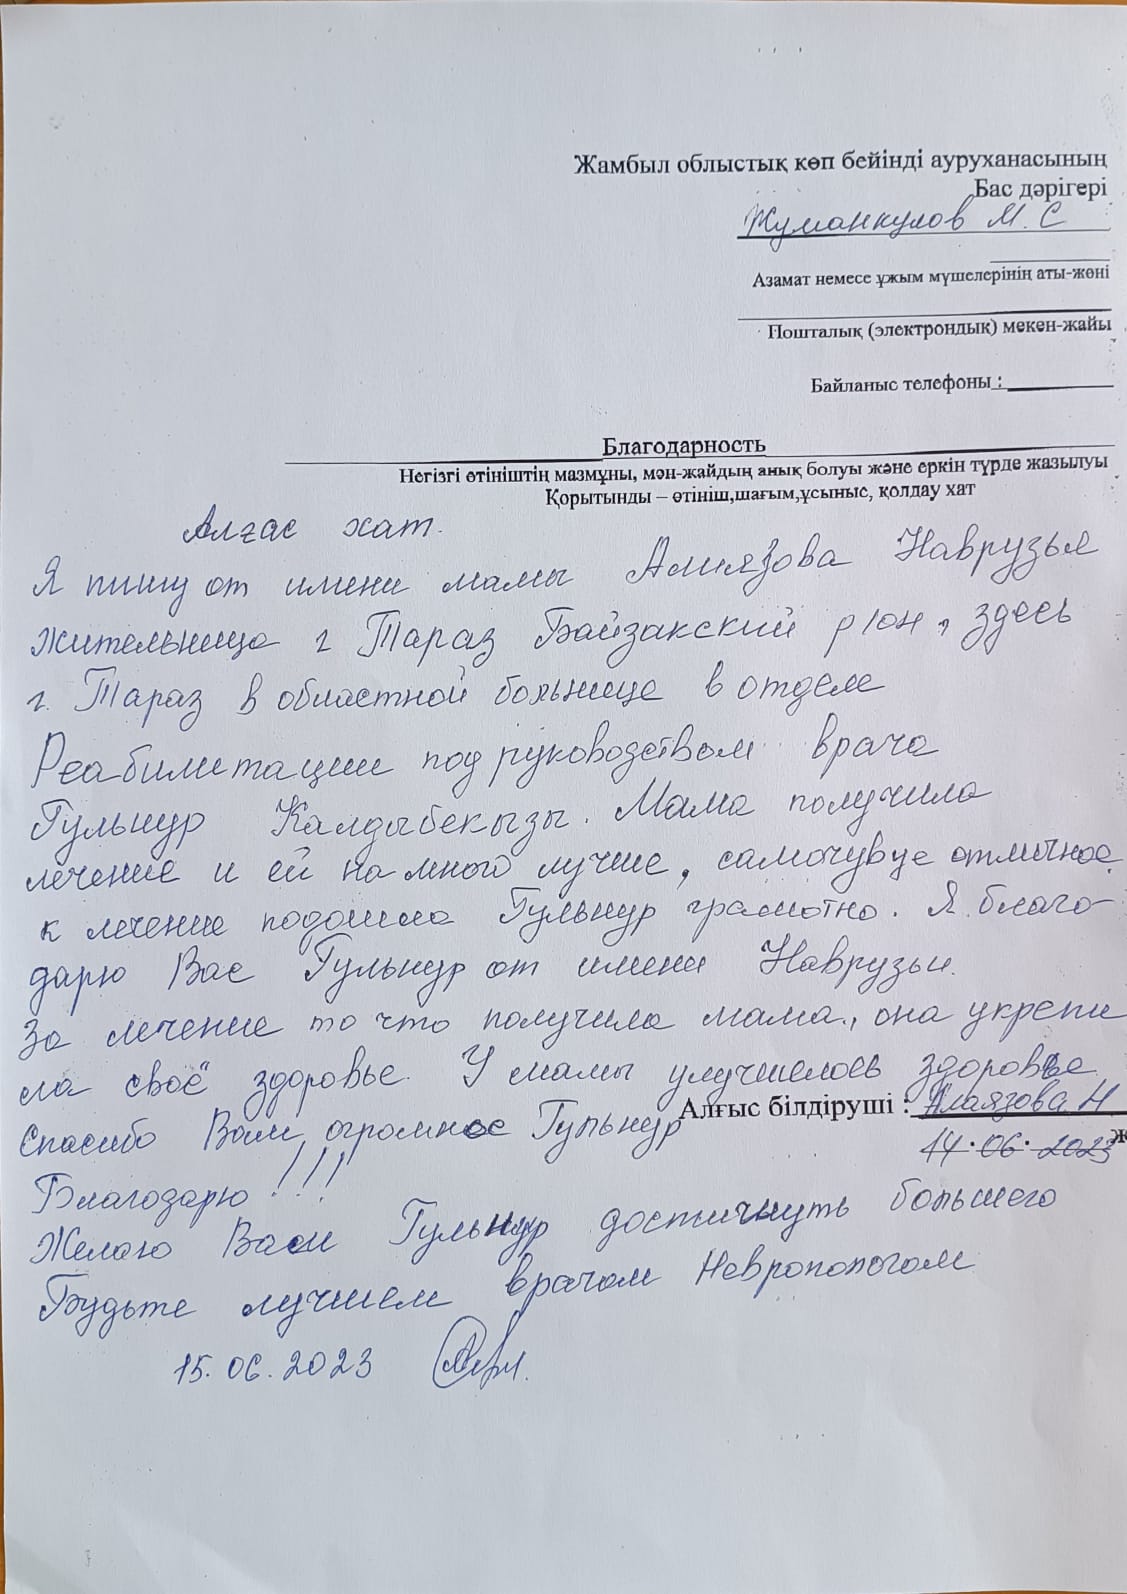 Жамбыл облыстық көп бейінді ауруханасының
Бас дәрігері
Жуманкулов М. С
Азамат немесе ұжым мүшелерінің аты-жөні
Пошталық (электрондық) мекен-жайы
Байланыс телефоны :
Благодарность
Негізгі өтініштің мазмұны, мән-жайдың анық болуы және еркін түрде жазылуы
Қорытынды – өтініш,шағым,ұсыныс, қолдау хат
Алғас хат.
Я пишу от имени мамы Алиязова Наврузья
жительница г Тараз Байзакский р/он, здесь
г. Тараз в областной больнице в отделе
Реабилитации под руководством врача
Гульнур Калдыбекызы. Мама получила
лечение и ей намного лучше, самочувуе отличное
к лечение подошла Гульнур грамотно. Я благо-
дарю Вас Гульнур от имени Наврузьи.
За лечение то что получила мама., она укрепи
ла своё здоровье. У мамы улучшелось здоровье
Алғыс білдіруші : Алаязова Н
Спасибо Вам огромное Гульнур
14.06.2023 Ж
Благодарю!!!
Желаю Вам Гульнур достичнуть большего
Будьте лучшем врачом Невропологом
15.06.2023